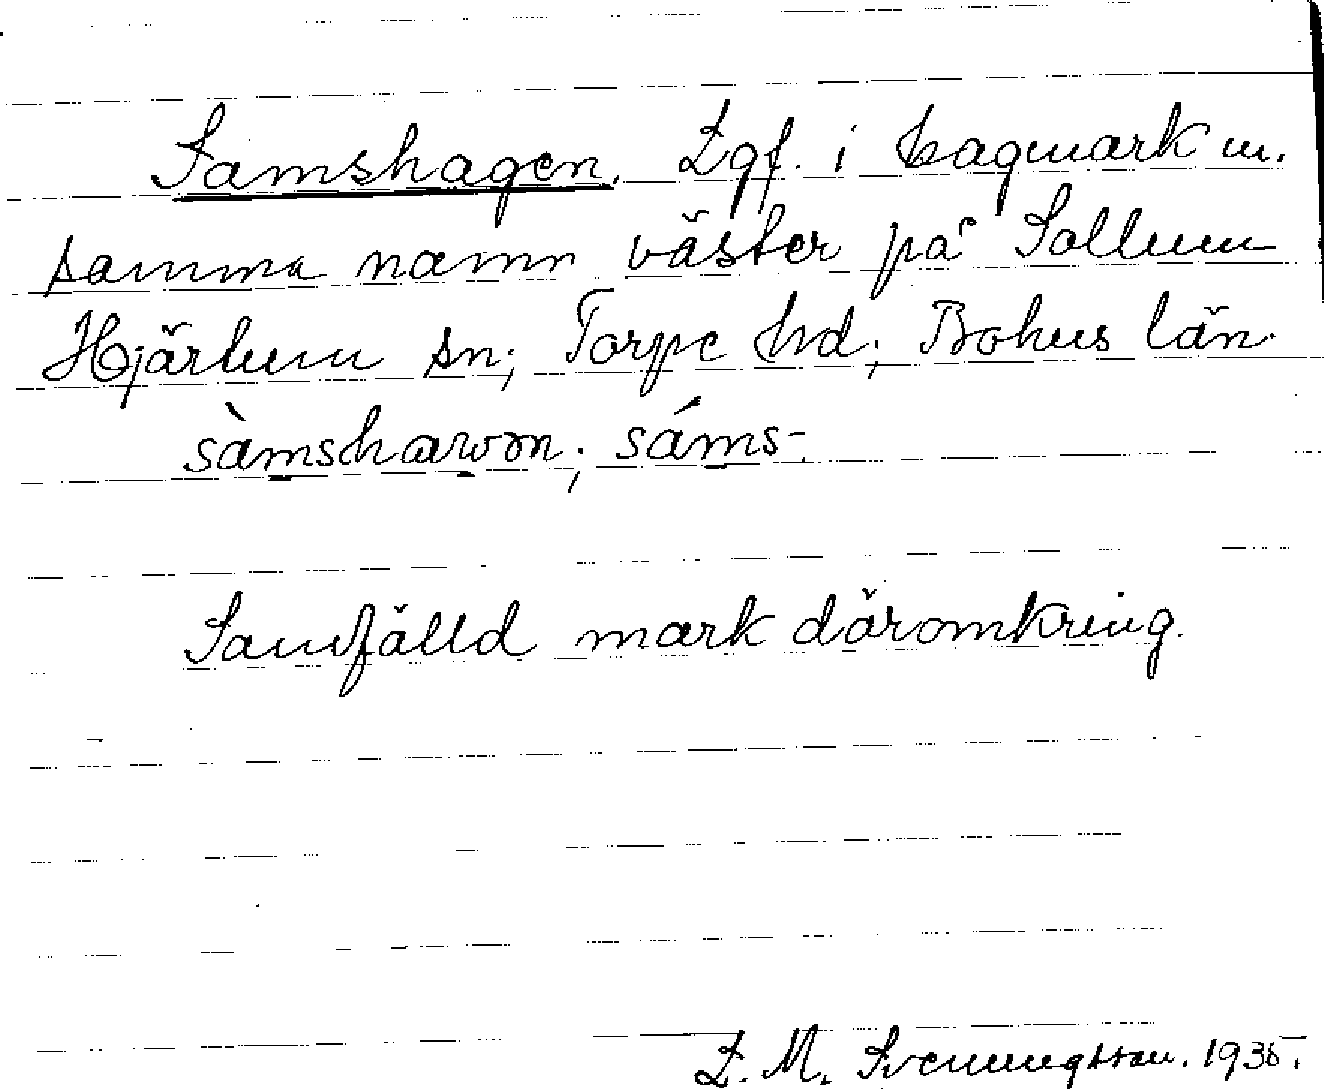 Samshagen. Lgf. i hagmark m.
samma namn väster på Sollum
Hjärtum sn; Torpe hd; Bohus län.
sàmshawon; sáms-.
Samfälld mark däromkring.
L. M. Svenungsson. 1935.